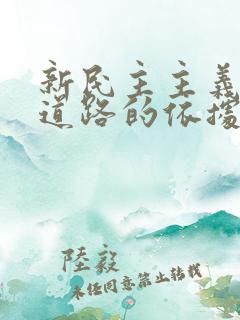 新民主主義
道路的依據
陸毅
未经同意禁止转载